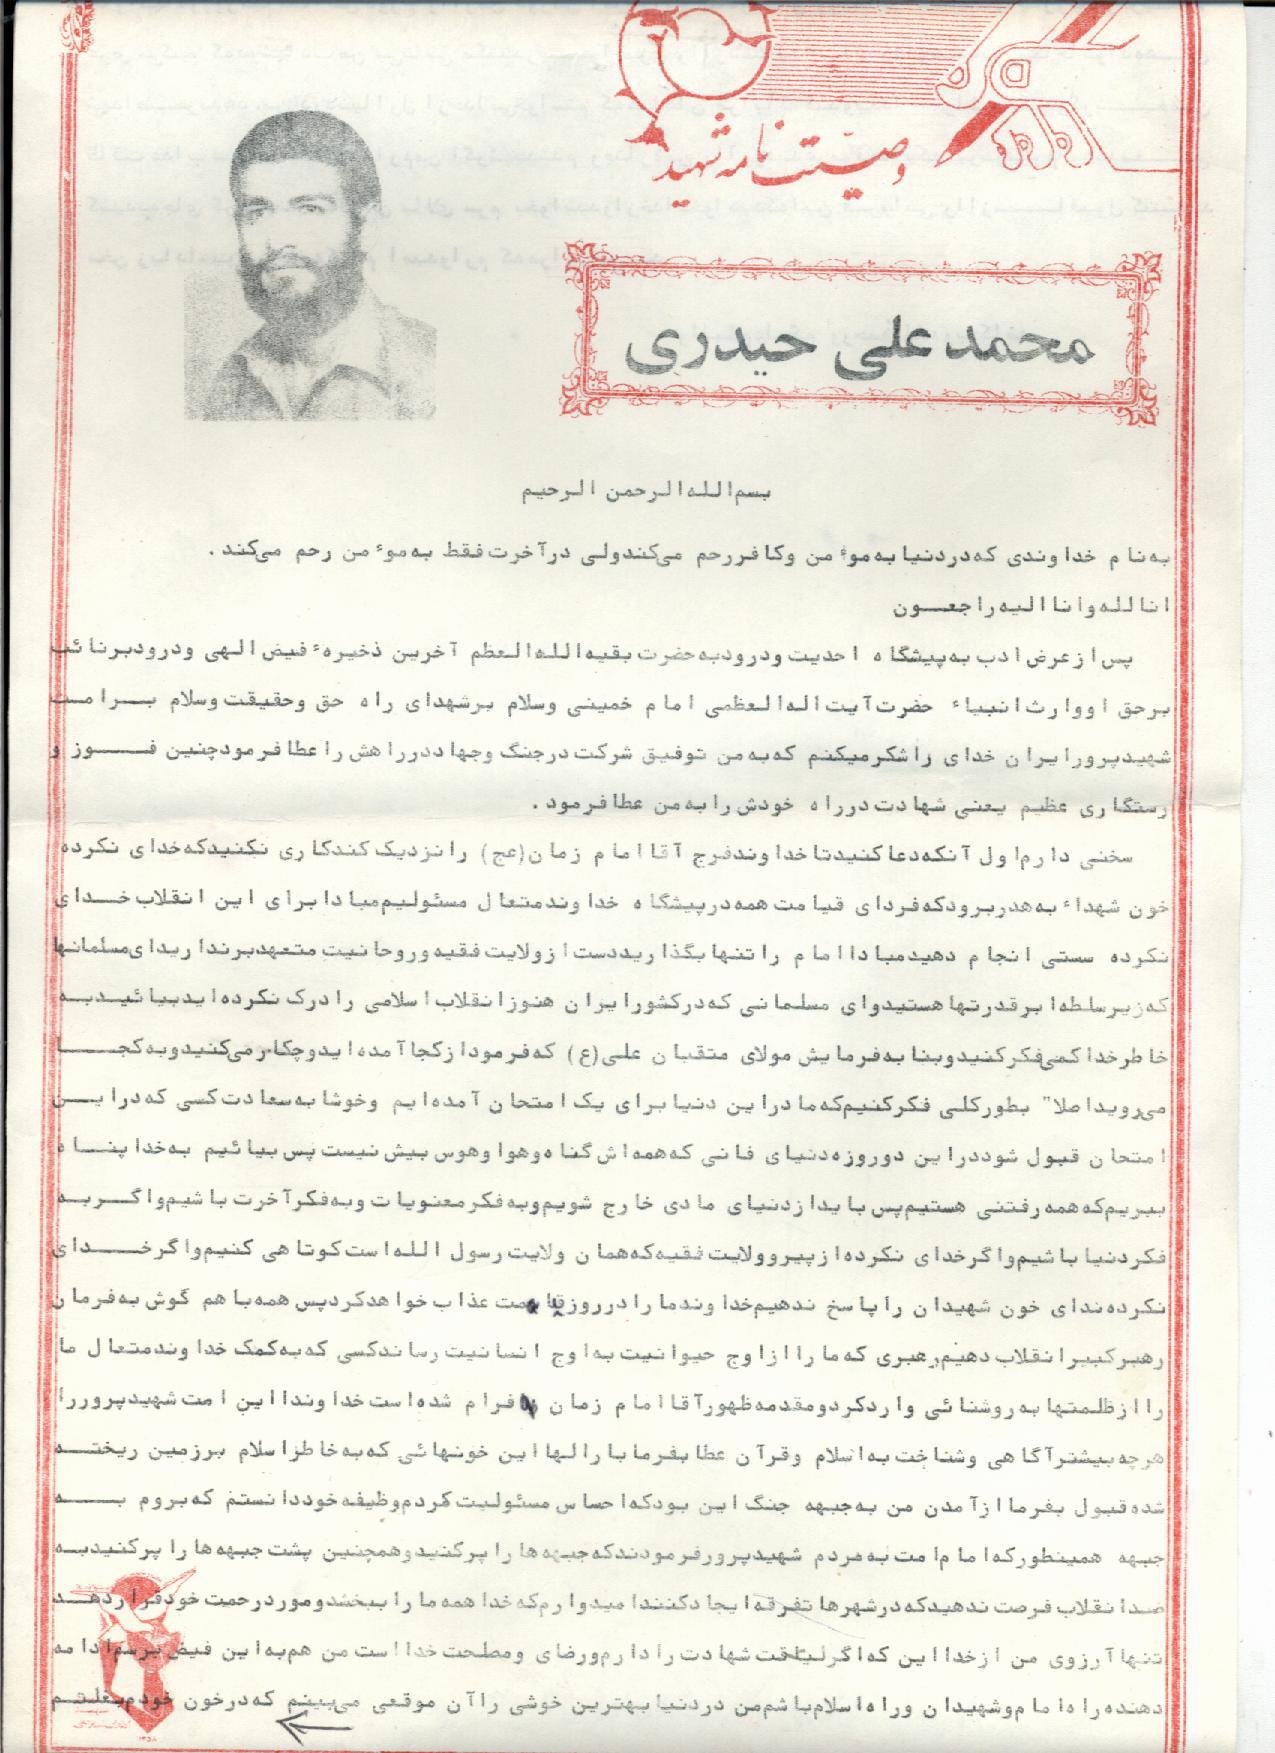 وصیت نامه شهید
محمدعلی حیدری
بسم الله الرحمن الرحیم
به نام خداوندی که در دنیا به موٴمن و کافر رحم می‌کند ولی در آخرت فقط به موٴمن رحم می‌کند .
انا لله و انا الیه راجعون
پس از عرض ادب به پیشگاه احدیت و درود به حضرت بقیه الله العظم آخرین ذخیرهٴ فیض الهی و درود بر نائب
بر حق او و وارث انبیاء حضرت آیت اله العظمی امام خمینی و سلام بر شهدای راه حق و حقیقت و سلام بر امت
شهیدپرور ایران خدای را شکر میکنم که به من توفیق شرکت در جنگ و جهاد در راهش را عطا فرمود چنین فوز و
رستگاری عظیم یعنی شهادت در راه خودش را به من عطا فرمود .
سخنی دارم اول آنکه دعا کنید تا خداوند فرج آقا امام زمان (عج) را نزدیک کند کاری نکنید که خدای نکرده
خون شهداء به هدر برود که فردای قیامت همه در پیشگاه خداوند متعال مسئولیم مبادا برای این انقلاب خدای
نکرده سستی انجام دهید مبادا امام را تنها بگذارید دست از ولایت فقیه و روحانیت متعهد برندارید ای مسلمانها
که زیر سلطه ابرقدرتها هستید و ای مسلمانی که در کشور ایران هنوز انقلاب اسلامی را درک نکرده اید بیائید به
خاطر خدا کمی فکر کنید و بنا به فرمایش مولای متقیان علی (ع) که فرمود از کجا آمده اید و چکار می‌کنید و به کجا
می‌روید اصلا" بطور کلی فکر کنیم که ما در این دنیا برای یک امتحان آمده ایم و خوشا به سعادت کسی که در این
امتحان قبول شود در این دو روزه دنیای فانی که همه اش گناه و هوا و هوس بیش نیست پس بیائیم به خدا پناه
ببریم که همه رفتنی هستیم پس باید از دنیای مادی خارج شویم و به فکر معنویات و به فکر آخرت باشیم و اگر به
فکر دنیا باشیم و اگر خدای نکرده از پیرو ولایت فقیه که همان ولایت رسول الله است کوتاهی کنیم و اگر خدای
نکرده ندای خون شهیدان را پاسخ ندهیم خداوند ما را در روز قیامت عذاب خواهد کرد پس همه با هم گوش به فرمان
رهبر کبیر انقلاب دهیم رهبری که ما را از اوج حیوانیت به اوج انسانیت رساند کسی که به کمک خداوند متعال ما
را از ظلمتها به روشنائی وارد کرد و مقدمه ظهور آقا امام زمان فرام شده است خداوندا این امت شهیدپرور را
هرچه بیشتر آگاهی و شناخت به اسلام و قرآن عطا بفرما بارالها این خونهائی که به خاطر اسلام بر زمین ریخته
شده قبول بفرما از آمدن من به جبهه جنگ این بود که احساس مسئولیت کردم وظیفه خود دانستم که بروم به
جبهه همینطور که امام امت به مردم شهیدپرور فرمودند که جبهه ها را پر کنید و همچنین پشت جبهه ها را پر کنید به
ضد انقلاب فرصت ندهید که در شهرها تفرقه ایجاد کنند امیدوارم که خدا همه ما را ببخشد و مورد رحمت خود قرار دهد
تنها آرزوی من از خدا این که اگر لیاقت شهادت را دارم و رضای و مصلحت خدا است من هم به این فیض برسم ادامه
دهنده راه امام و شهیدان و راه اسلام باشم من در دنیا بهترین خوشی را آن موقعی می‌بینم که در خون خودم بغلتم
۱۳۵۸